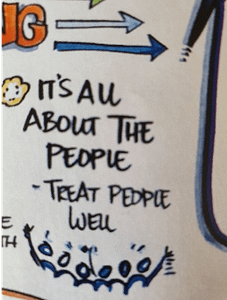 NG
IT'S ALL
ABOUT THE
PEOPLE
- TREAT PEOPLE
WELL
E
TH